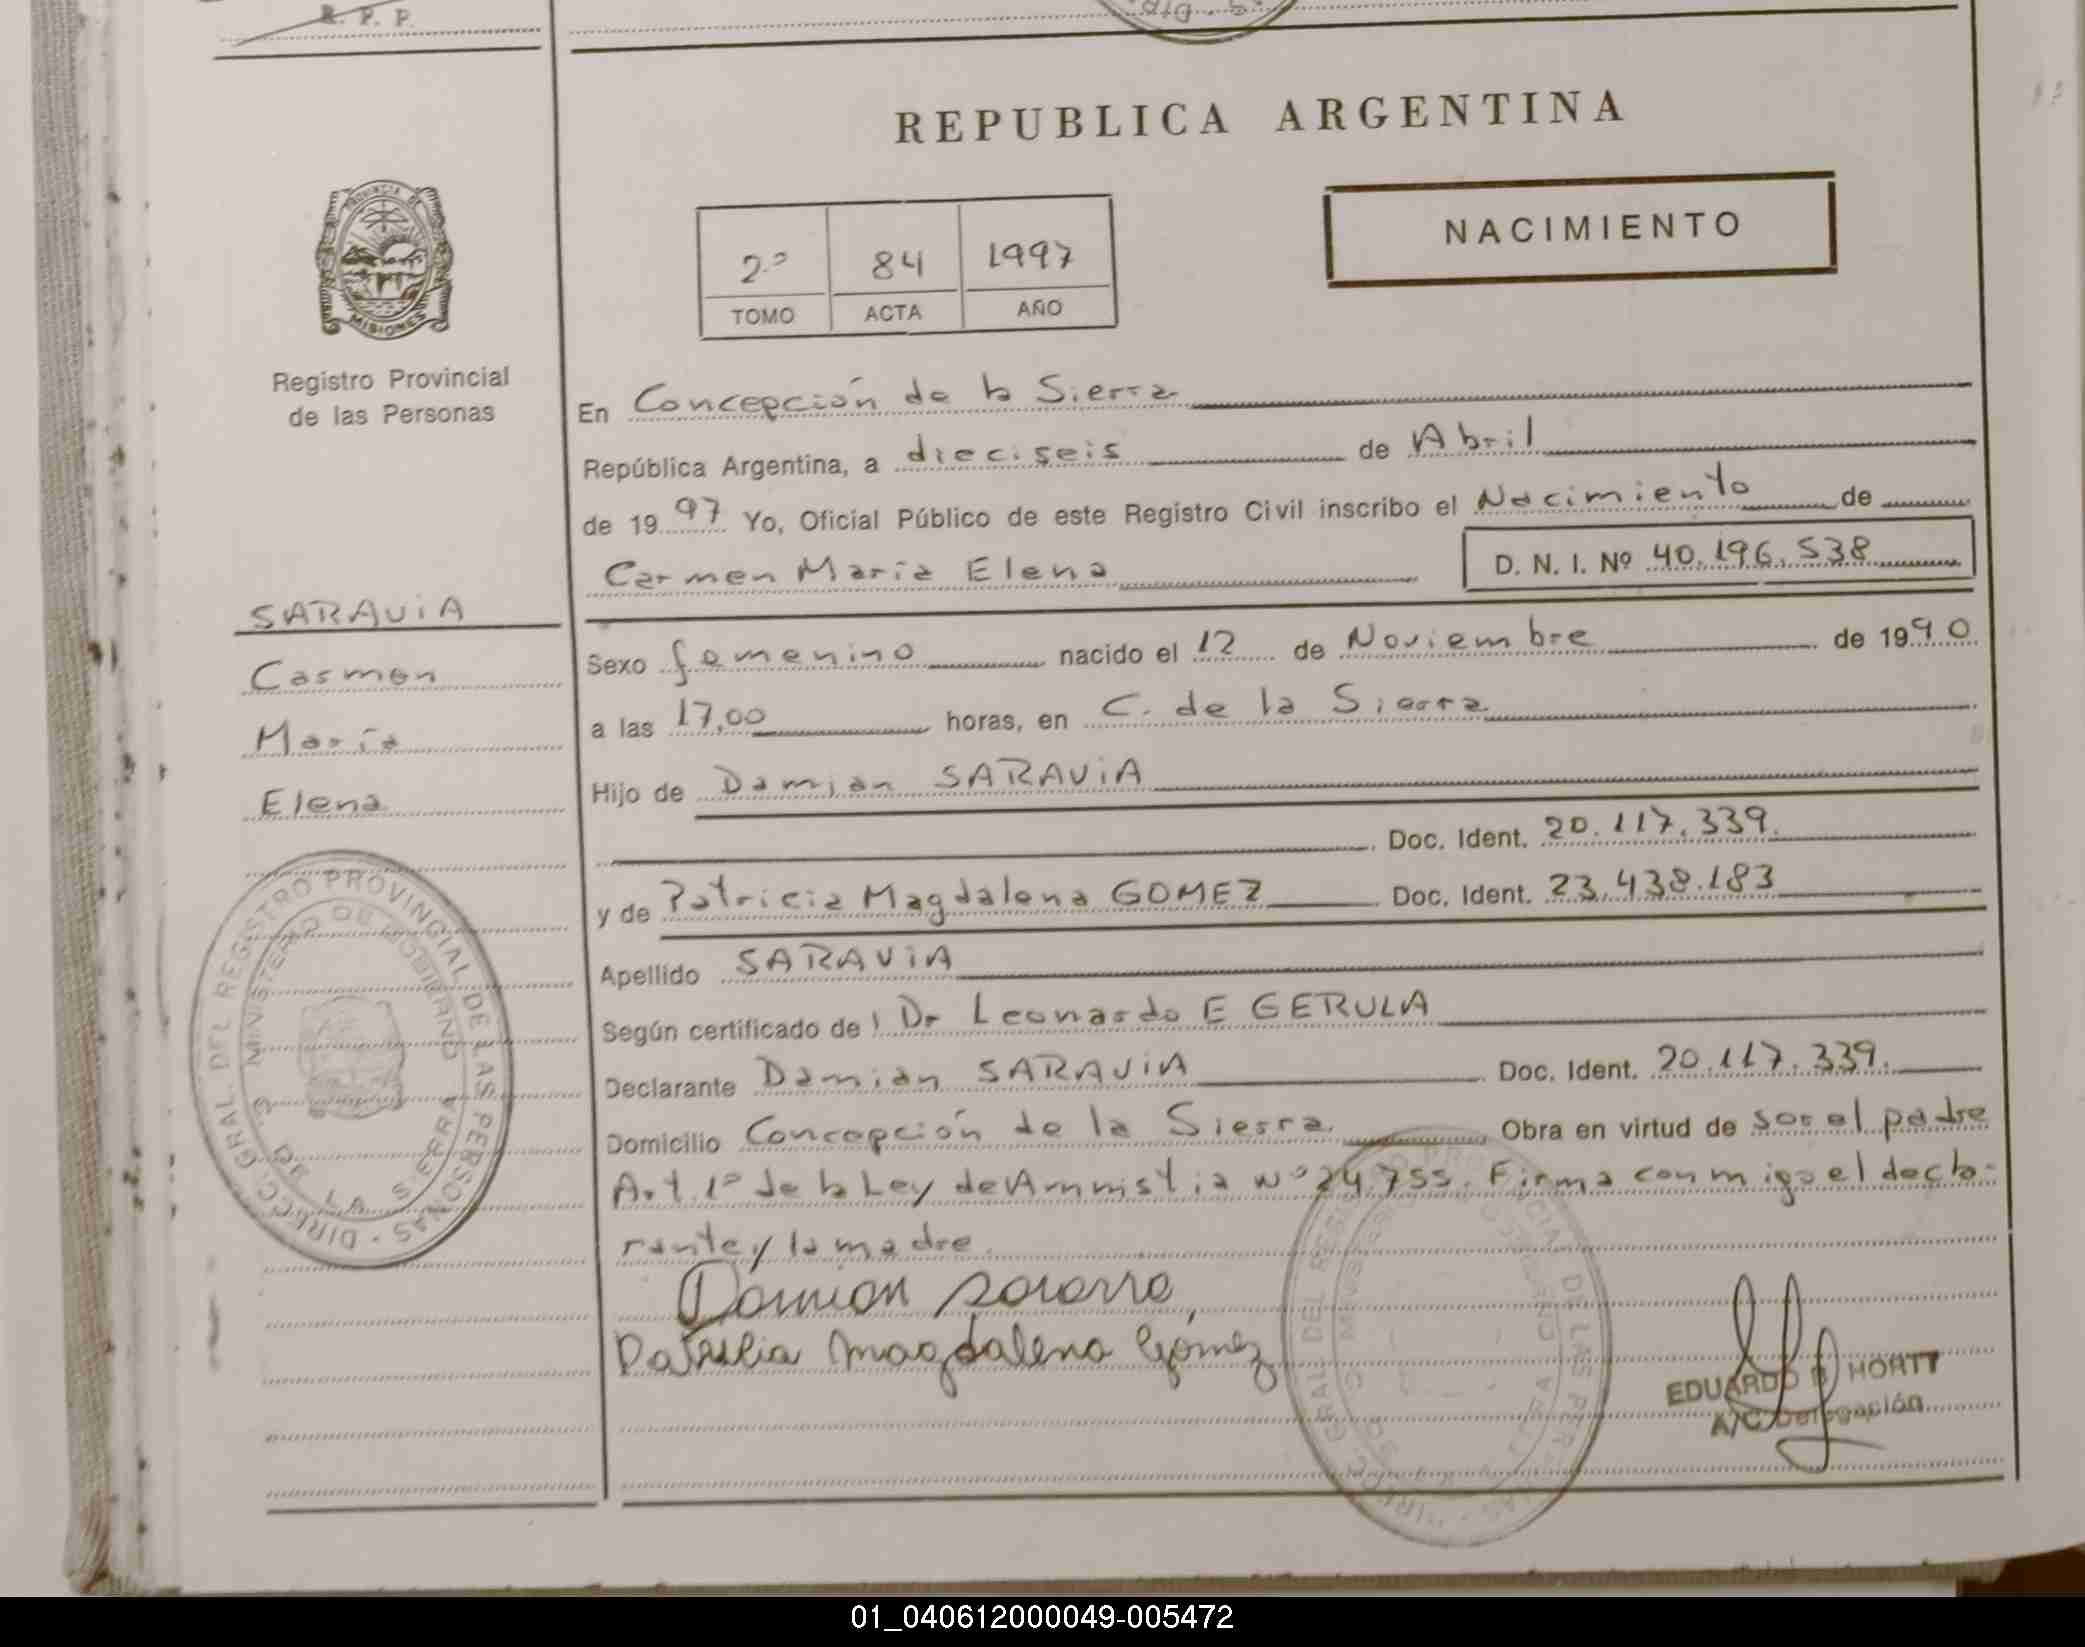 R. P. P.
REPUBLICA ARGENTINA
PROVINCIA DE
MISIONES
2º 84 1997
TOMO ACTA AÑO
NACIMIENTO
Registro Provincial
de las Personas
En Concepción de la Sierra
República Argentina, a dieciseis de Abril
de 1997 Yo, Oficial Público de este Registro Civil inscribo el Nacimiento de
Carmen Maria Elena D. N. I. Nº 40.196.538
SARAViA
Carmen
María
Elena
Sexo femenino nacido el 12 de Noviembre de 1990
a las 17,00 horas, en C. de la Sierra
Hijo de Damian SARAViA
Doc. Ident. 20.117.339.
y de Patricia Magdalena GOMEZ Doc. Ident. 23.438.183
Apellido SARAViA
Según certificado de Dr Leonardo E GERULA
Declarante Damian SARAViA Doc. Ident. 20.117.339.
Domicilio Concepción de la Sierra. Obra en virtud de ser el padre
Art 1º de la Ley de Amnistia Nº 24.755. Firma conmigo el decla-
rante y la madre.
Patricia Magdalena Gómez
EDUARDO HORTT
A/C Delegación
DIREC. GRAL. DEL REGISTRO PROVINCIAL DE LAS PERSONAS
MINISTERIO DE GOBIERNO
LA SIERRA
01_040612000049-005472